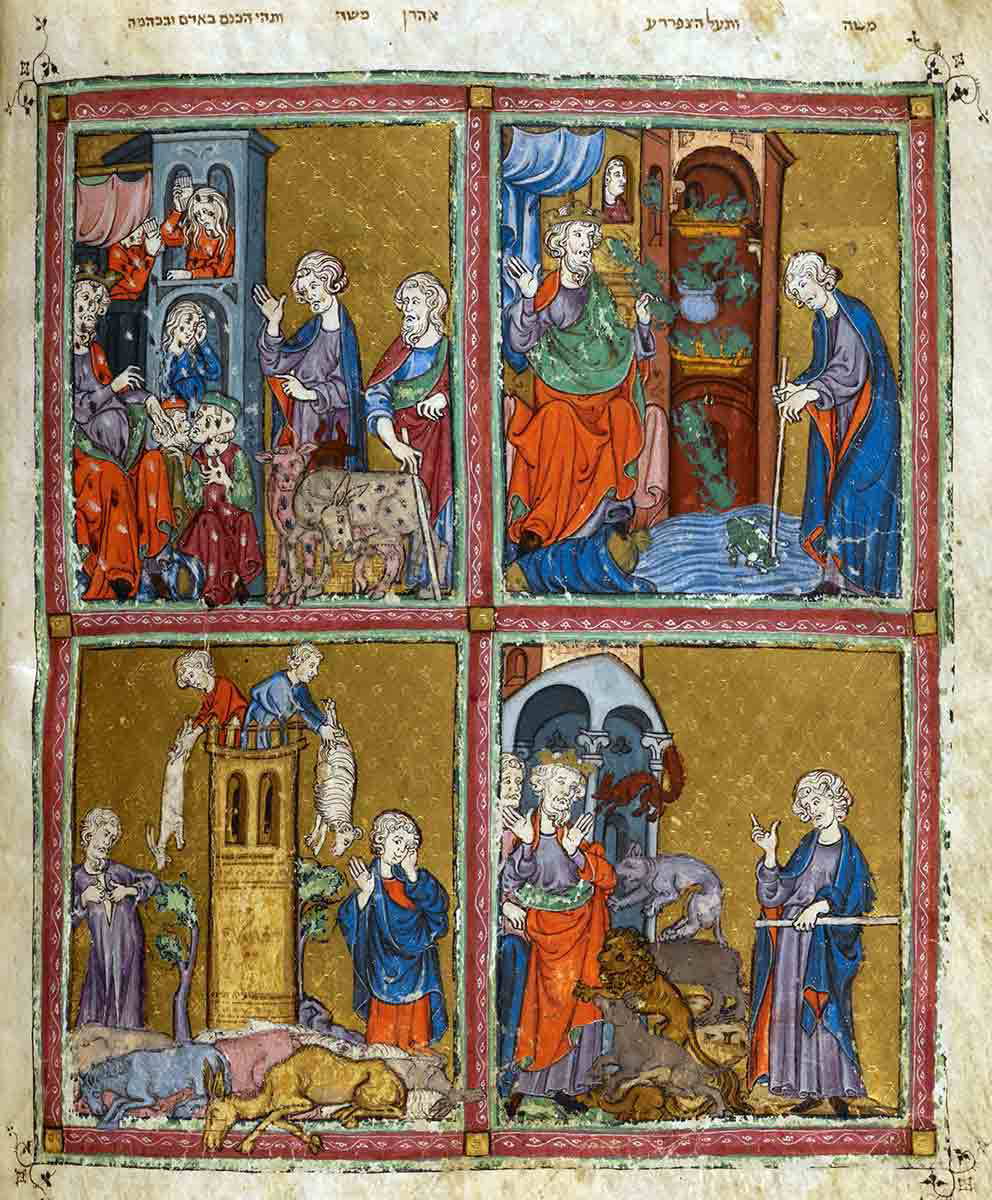 משה ותעל הצפרדע אהרן משה ותהי הכנם באדם ובבהמה